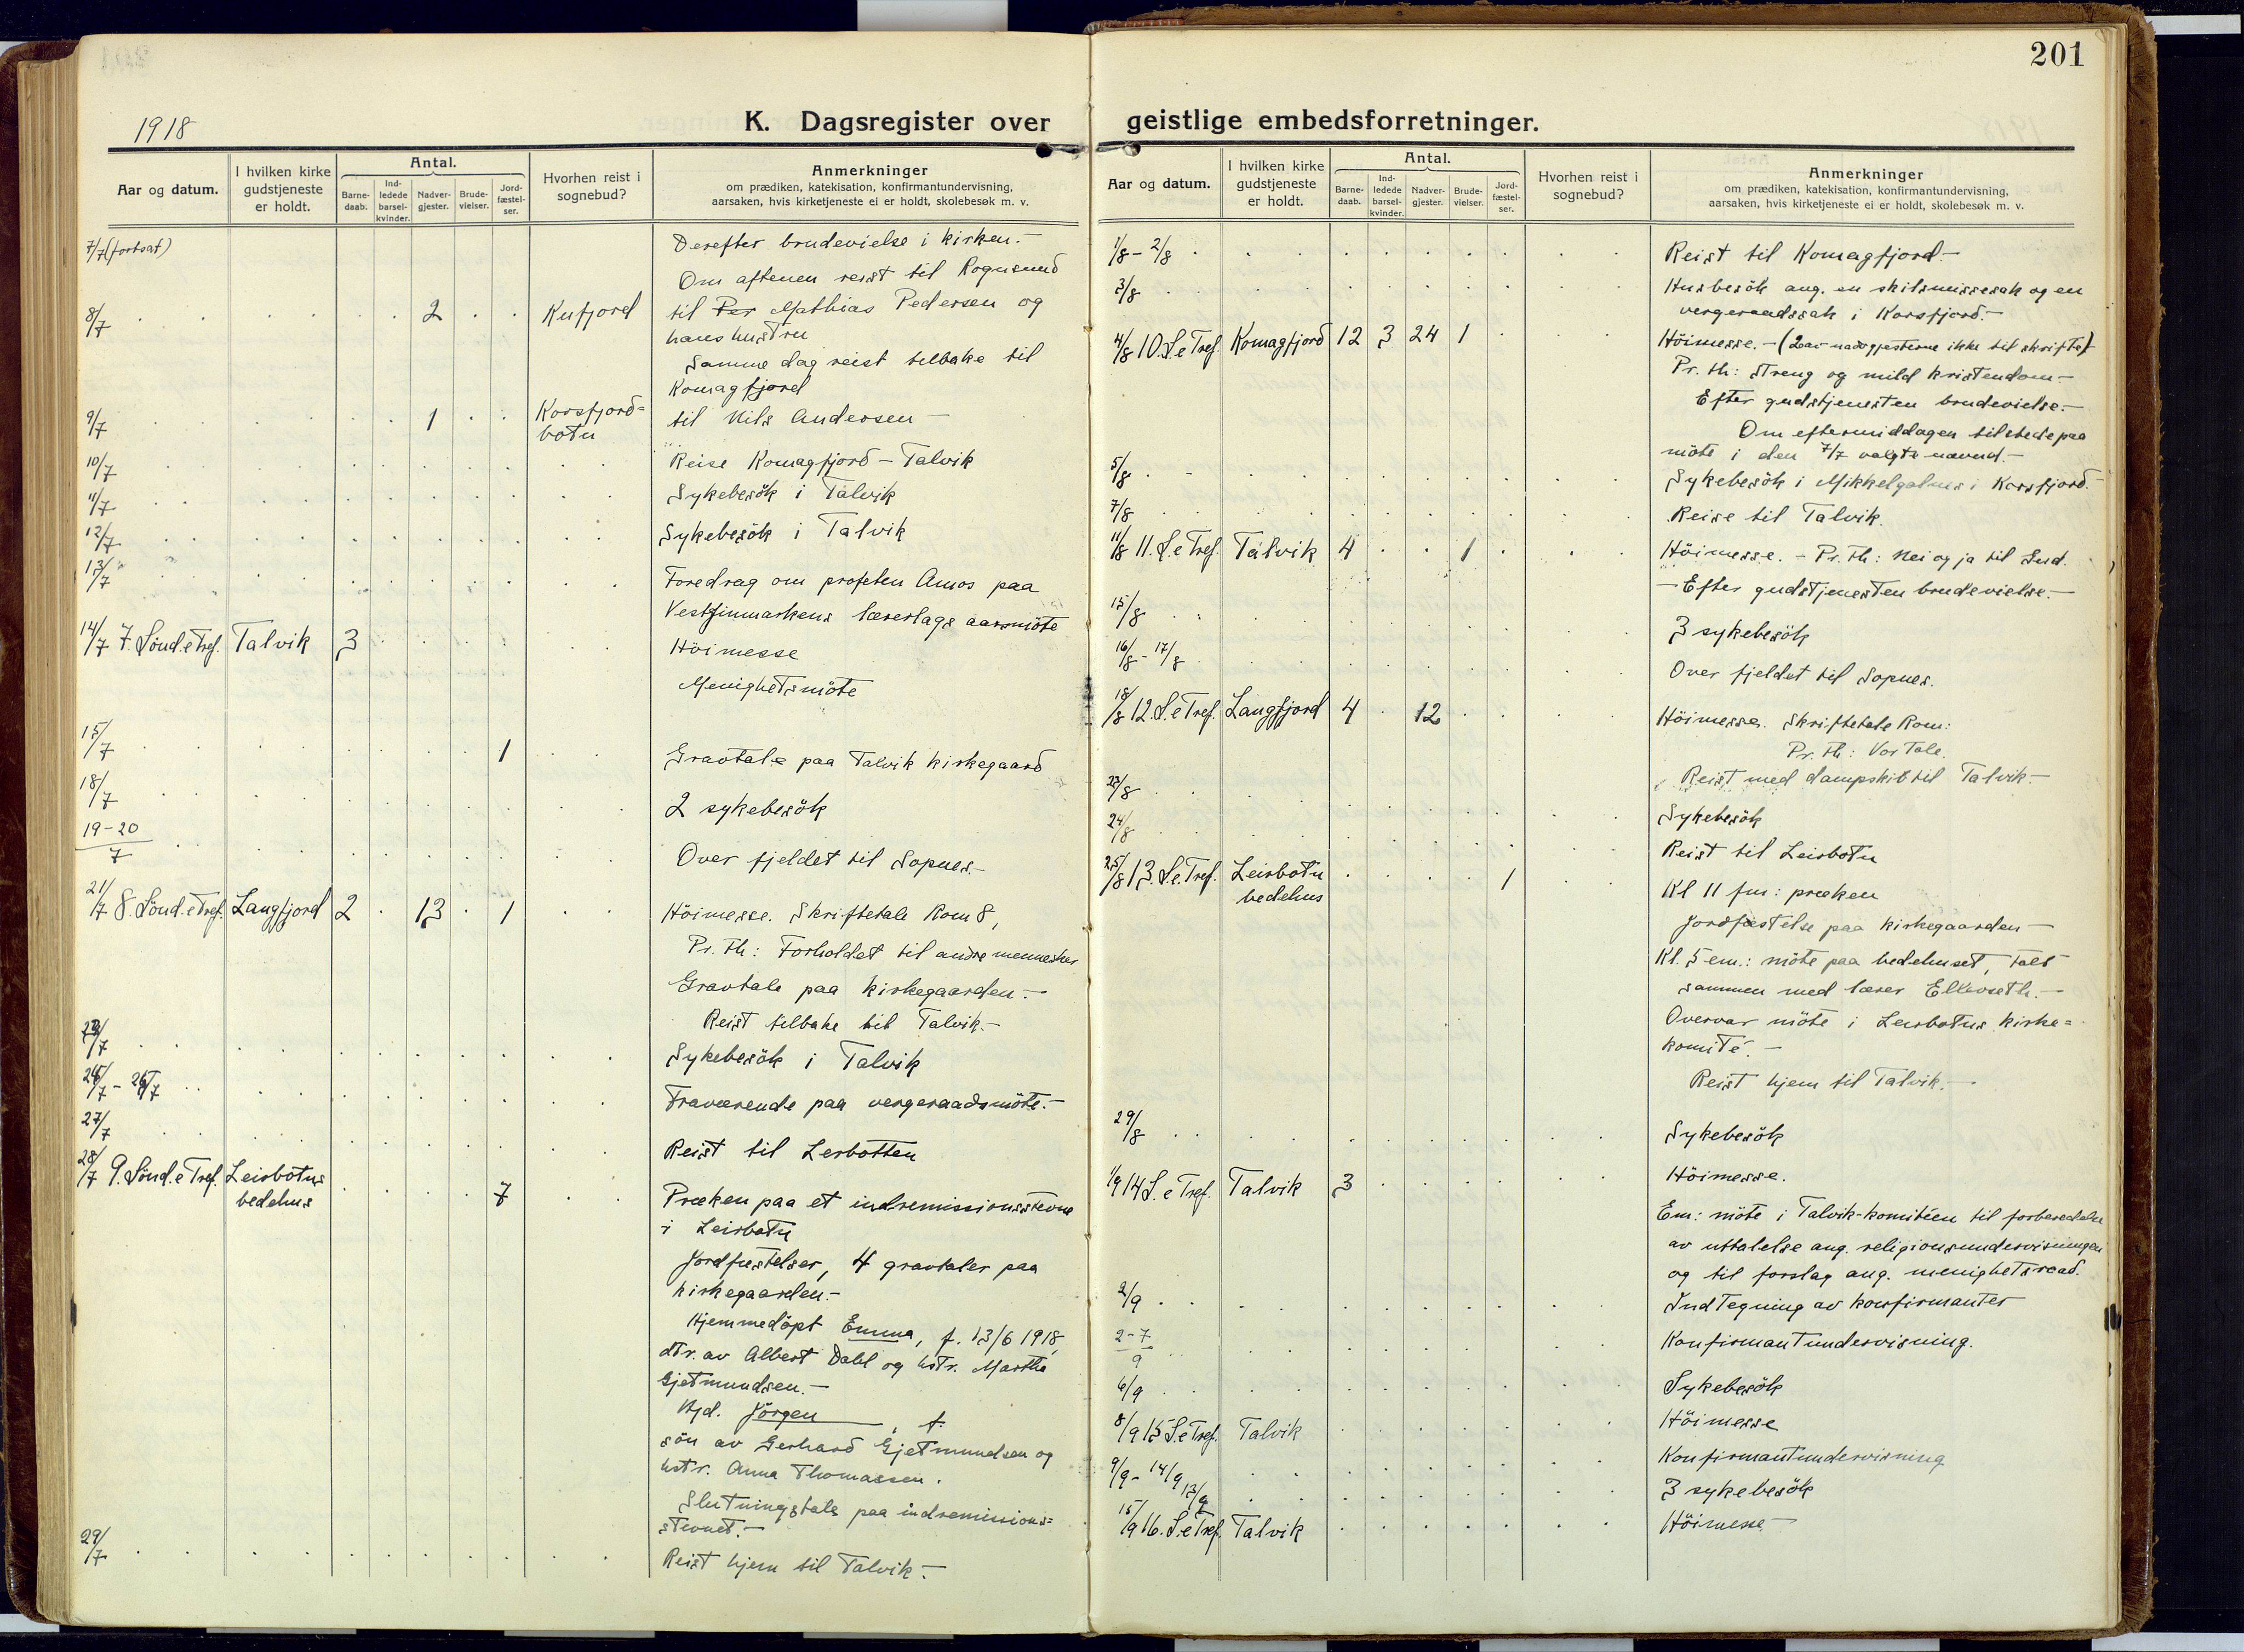 201
1918
K. Dagsregister over
Aar og datum.
I hvilken kirke gudstjeneste er holdt.
Antal.
Barne-daab.
Ind-ledede barsel-kvinder.
Nadver-gjester.
Brude-vielser.
Jord-fæstel-ser.
Hvorhen reist i sognebud?
Anmerkninger
om prædiken, katekisation, konfirmantundervisning,
aarsaken, hvis kirketjeneste ei er holdt, skolebesøk m. v.
7/7 (fortsat) Derefter brudevielse i kirken.-
Om aftenen reist til Rognsund
8/7 2 Kufjord til Per Mathias Pedersen og
hans hustru
Samme dag reist tilbake til
Komagfjord
9/7 1 Korsfjord=
botn til Nils Andersen -
10/7 Reise Komagfjord - Talvik
11/7 Sykebesök i Talvik
12/7 Sykebesök i Talvik
13/7 Foredrag om profeten Amos paa
Vestfinmarkens lærerlags aarsmöte
14/7 7. Sönd. e Tref. Talvik 3 Höimesse
Menighetsmöte
15/7 1 Gravtale paa Talvik kirkegaard
18/7 2 sykebesök
19-20/7 Over fjeldet til Sopnes.-
21/7 8. Sönd. e Tref. Langfjord 2 13 1 Höimesse. Skriftetale Rom 8,
Pr. th: Forholdet til andre mennesker
Gravtale paa kirkegaarden.-
Reist tilbake til Talvik.-
Sykebesök i Talvik
Fraværende paa vergeraadsmöte.-
27/7 Reist til Lerbotten
28/7 9. Sönd. e Tref. Leirbotns
bedehus 7 Præken paa et indremissionsstevne
i Leirbotn
Jordfæstelser, 4 gravtaler paa
kirkegaarden.-
Hjemmedöpt Emma, f. 13/6 1918,
dtr. av Albert Dahl og hstr. Martha
Gjetmundsen.-
Hjd. Jörgen , f.
sön av Gerhard Gjetmundsen og
hstr. Anna Thomassen.
Slutningstale paa indremissions=
stevnet.-
29/7 Reist hjem til Talvik.-
geistlige embedsforretninger.
Aar og datum.
I hvilken kirke gudstjeneste er holdt.
Antal.
Barne-daab.
Ind-ledede barsel-kvinder.
Nadver-gjester.
Brude-vielser.
Jord-fæstel-ser.
Hvorhen reist i sognebud?
Anmerkninger
om prædiken, katekisation, konfirmantundervisning,
aarsaken, hvis kirketjeneste ei er holdt, skolebesøk m. v.
1/8 - 2/8 Reist til Komagfjord.-
3/8 Husbesök ang. en skilsmissesak og en
vergeraadssak i Korsfjord.-
4/8 10. S. e Tref. Komagfjord 12 3 24 1 Höimesse.- (2 av nadvgjesterne ikke til skrifte)-
Pr. th: Streng og mild kristendom.-
Efter gudstjenesten brudevielse.-
Om eftermiddagen tilstede paa
möte i den 7/7 valgte nævnd.-
5/8 Sykebesök i Mikkelgalmes i Korsfjord.-
7/8 Reise til Talvik.
11/8 11. S. e Tref. Talvik 4 1 Höimesse. - Pr. th: Nei og ja til Gud.
- Efter gudstjenesten brudevielse.-
15/8 3 sykebesök
16/8 - 17/8 Over fjeldet til Sopnes.
18/8 12. S. e Tref. Langfjord 4 12 Höimesse. Skriftetale Rom:
Pr. th: Vor Tale.
Reist med dampskib til Talvik.-
Sykebesök
24/8 Reist til Leirbotn
25/8 13. S. e. Tref. Leirbotn
bedehus 1 Kl 11 fm: præken
Jordfæstelse paa kirkegaarden -
Kl. 5 em.: möte paa bedehuset, talt
sammen med lærer Elkevseth.-
Overvar möte i Leirbotns kirke=
komité.-
Reist hjem til Talvik.-
29/8 Sykebesök
1/9 14 S. e Tref. Talvik 3 Höimesse.
Em: möte i Talvik-komitéen til forberedelse
av uttalelse ang. religionsundervisningen
og til forslag ang. menighetsraad.
2/9 Indtegning av konfirmanter
2-7/9 Konfirmantundervisning.
6/9 Sykebesök
8/9 15 S. e Tref. Talvik Höimesse
9/9 - 14/9 Konfirmantundervisning
13/9 3 sykebesök
15/9 16. S. e Tref. Talvik Höimesse.-